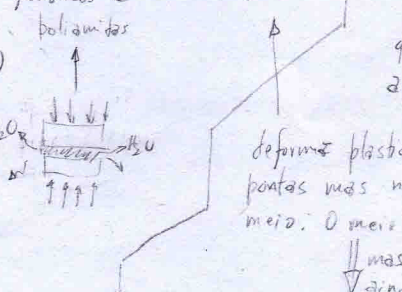 poliamidas
H₂O
deforma plast
pontas mas n
meio. O meio
mas
ain